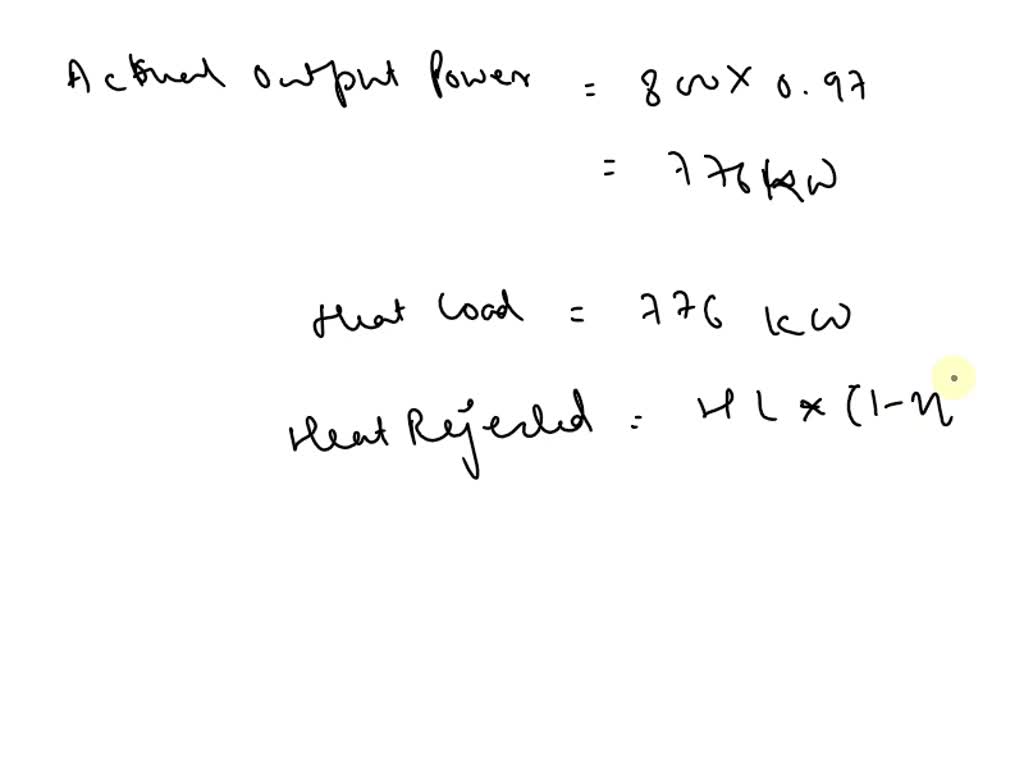 Actual Output Power = 800 × 0.97
= 776 kW
Heat Load = 776 kW
Heat Rejected = HL × (1-η